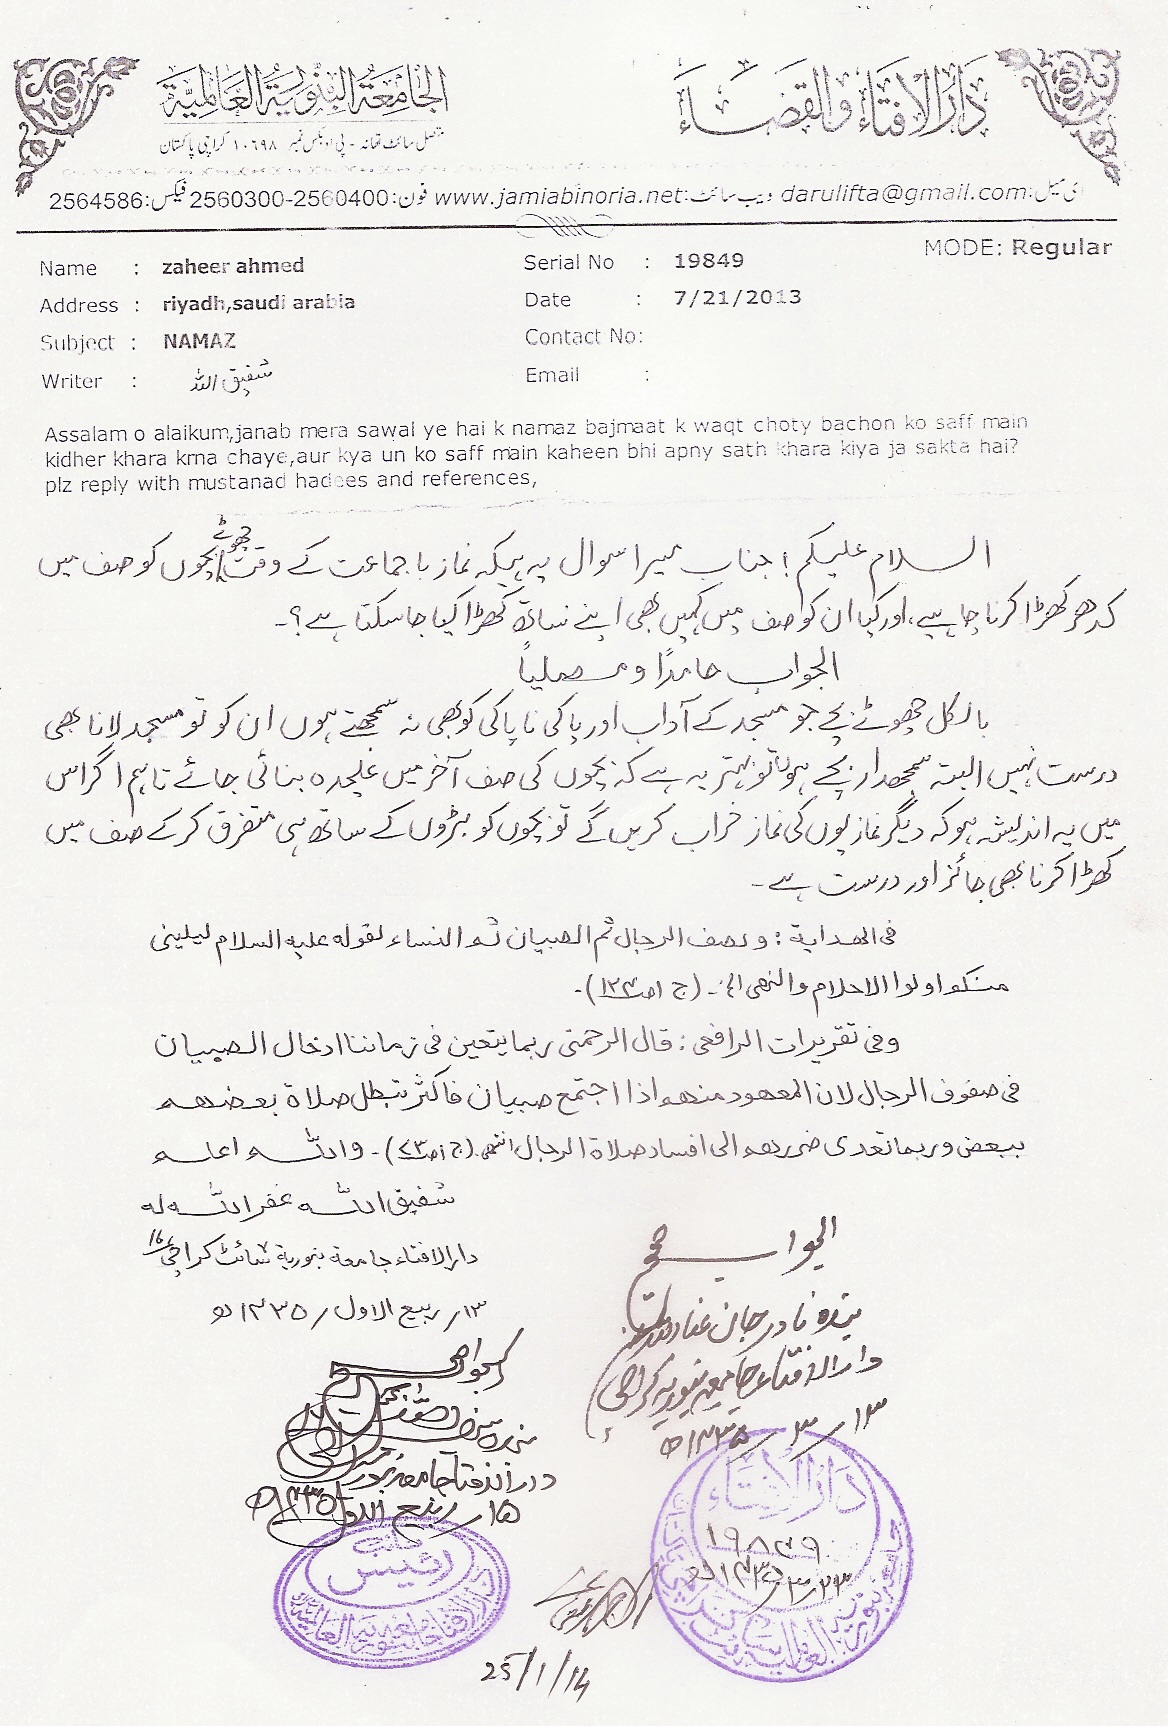 دارالافتاء والقضاء
الجامعة البنورية العالمية
متصل سائٹ تھانہ - پی او بکس نمبر ۱۰۶۹۸ کراچی پاکستان
ای میل:darulifta@gmail.com ویب سائٹ:www.jamiabinoria.net فون:2560300-2560400 فیکس:2564586
MODE: Regular
Name : zaheer ahmed Serial No : 19849
Address : riyadh,saudi arabia Date : 7/21/2013
Subject : NAMAZ Contact No:
Writer : شفیق اللہ Email :
Assalam o alaikum,janab mera sawal ye hai k namaz bajmaat k waqt choty bachon ko saff main
kidher khara krna chaye,aur kya un ko saff main kaheen bhi apny sath khara kiya ja sakta hai?
plz reply with mustanad hadees and references,
السلام علیکم! جناب میرا سوال یہ ہیکہ نماز با جماعت کے وقت چھوٹے بچوں کو صف میں
کدھر کھڑا کرنا چاہیے، اور کیا ان کو صف میں کہیں بھی اپنے ساتھ کھڑا کیا جا سکتا ہے؟۔
الجواب حامدًا ومصلیاً
بالکل چھوٹے بچے جو مسجد کے آداب اور پاکی ناپاکی کو بھی نہ سمجھتے ہوں ان کو تو مسجد لانا بھی
درست نہیں البتہ سمجھدار بچے ہوں تو بہتر یہ ہے کہ بچوں کی صف آخر میں علیحدہ بنائی جائے تاہم اگر اس
میں یہ اندیشہ ہو کہ دیگر نمازیوں کی نماز خراب کریں گے تو بچوں کو بڑوں کے ساتھ ہی متفرق کرکے صف میں
کھڑا کرنا بھی جائز اور درست ہے۔
فی الهدایة: ویصف الرجال ثم الصبیان ثم النساء لقوله علیه السلام لیلینی
منکم اولوا الاحلام والنهی الخ۔ (ج۱ ص۱۲۴)۔
وفی تقریرات الرافعی: قال الرحمتی ربما یتعین فی زماننا ادخال الصبیان
فی صفوف الرجال لان المعهود منهم اذا اجتمع صبیان فاکثر تبطل صلاة بعضهم
ببعض وربما تعدی ضررهم الی افساد صلاة الرجال انتهی۔ (ج۱ ص۷۳)۔ واللہ اعلم
شفیق اللہ غفر اللہ له
دارالافتاء جامعہ بنوریة سائٹ کراچی ۱۶
۱۳/ ربیع الاول/ ۱۴۳۵ھ
الجواب صحیح
بندہ نادر جان عفا اللہ عنہ
دارالافتاء جامعہ بنوریہ کراچی
۱۳/ ۳/ ۱۴۳۵ھ
الجواب صحیح
دارالافتاء جامعہ بنوریہ
۱۵/ ربیع الاول ۱۴۳۵ھ
دارالافتاء
۱۹۸۴۹
۲۳/۳/۱۴۳۵ھ
رئیس
دارالافتاء جامعہ بنوریہ العالمیہ
25/1/14